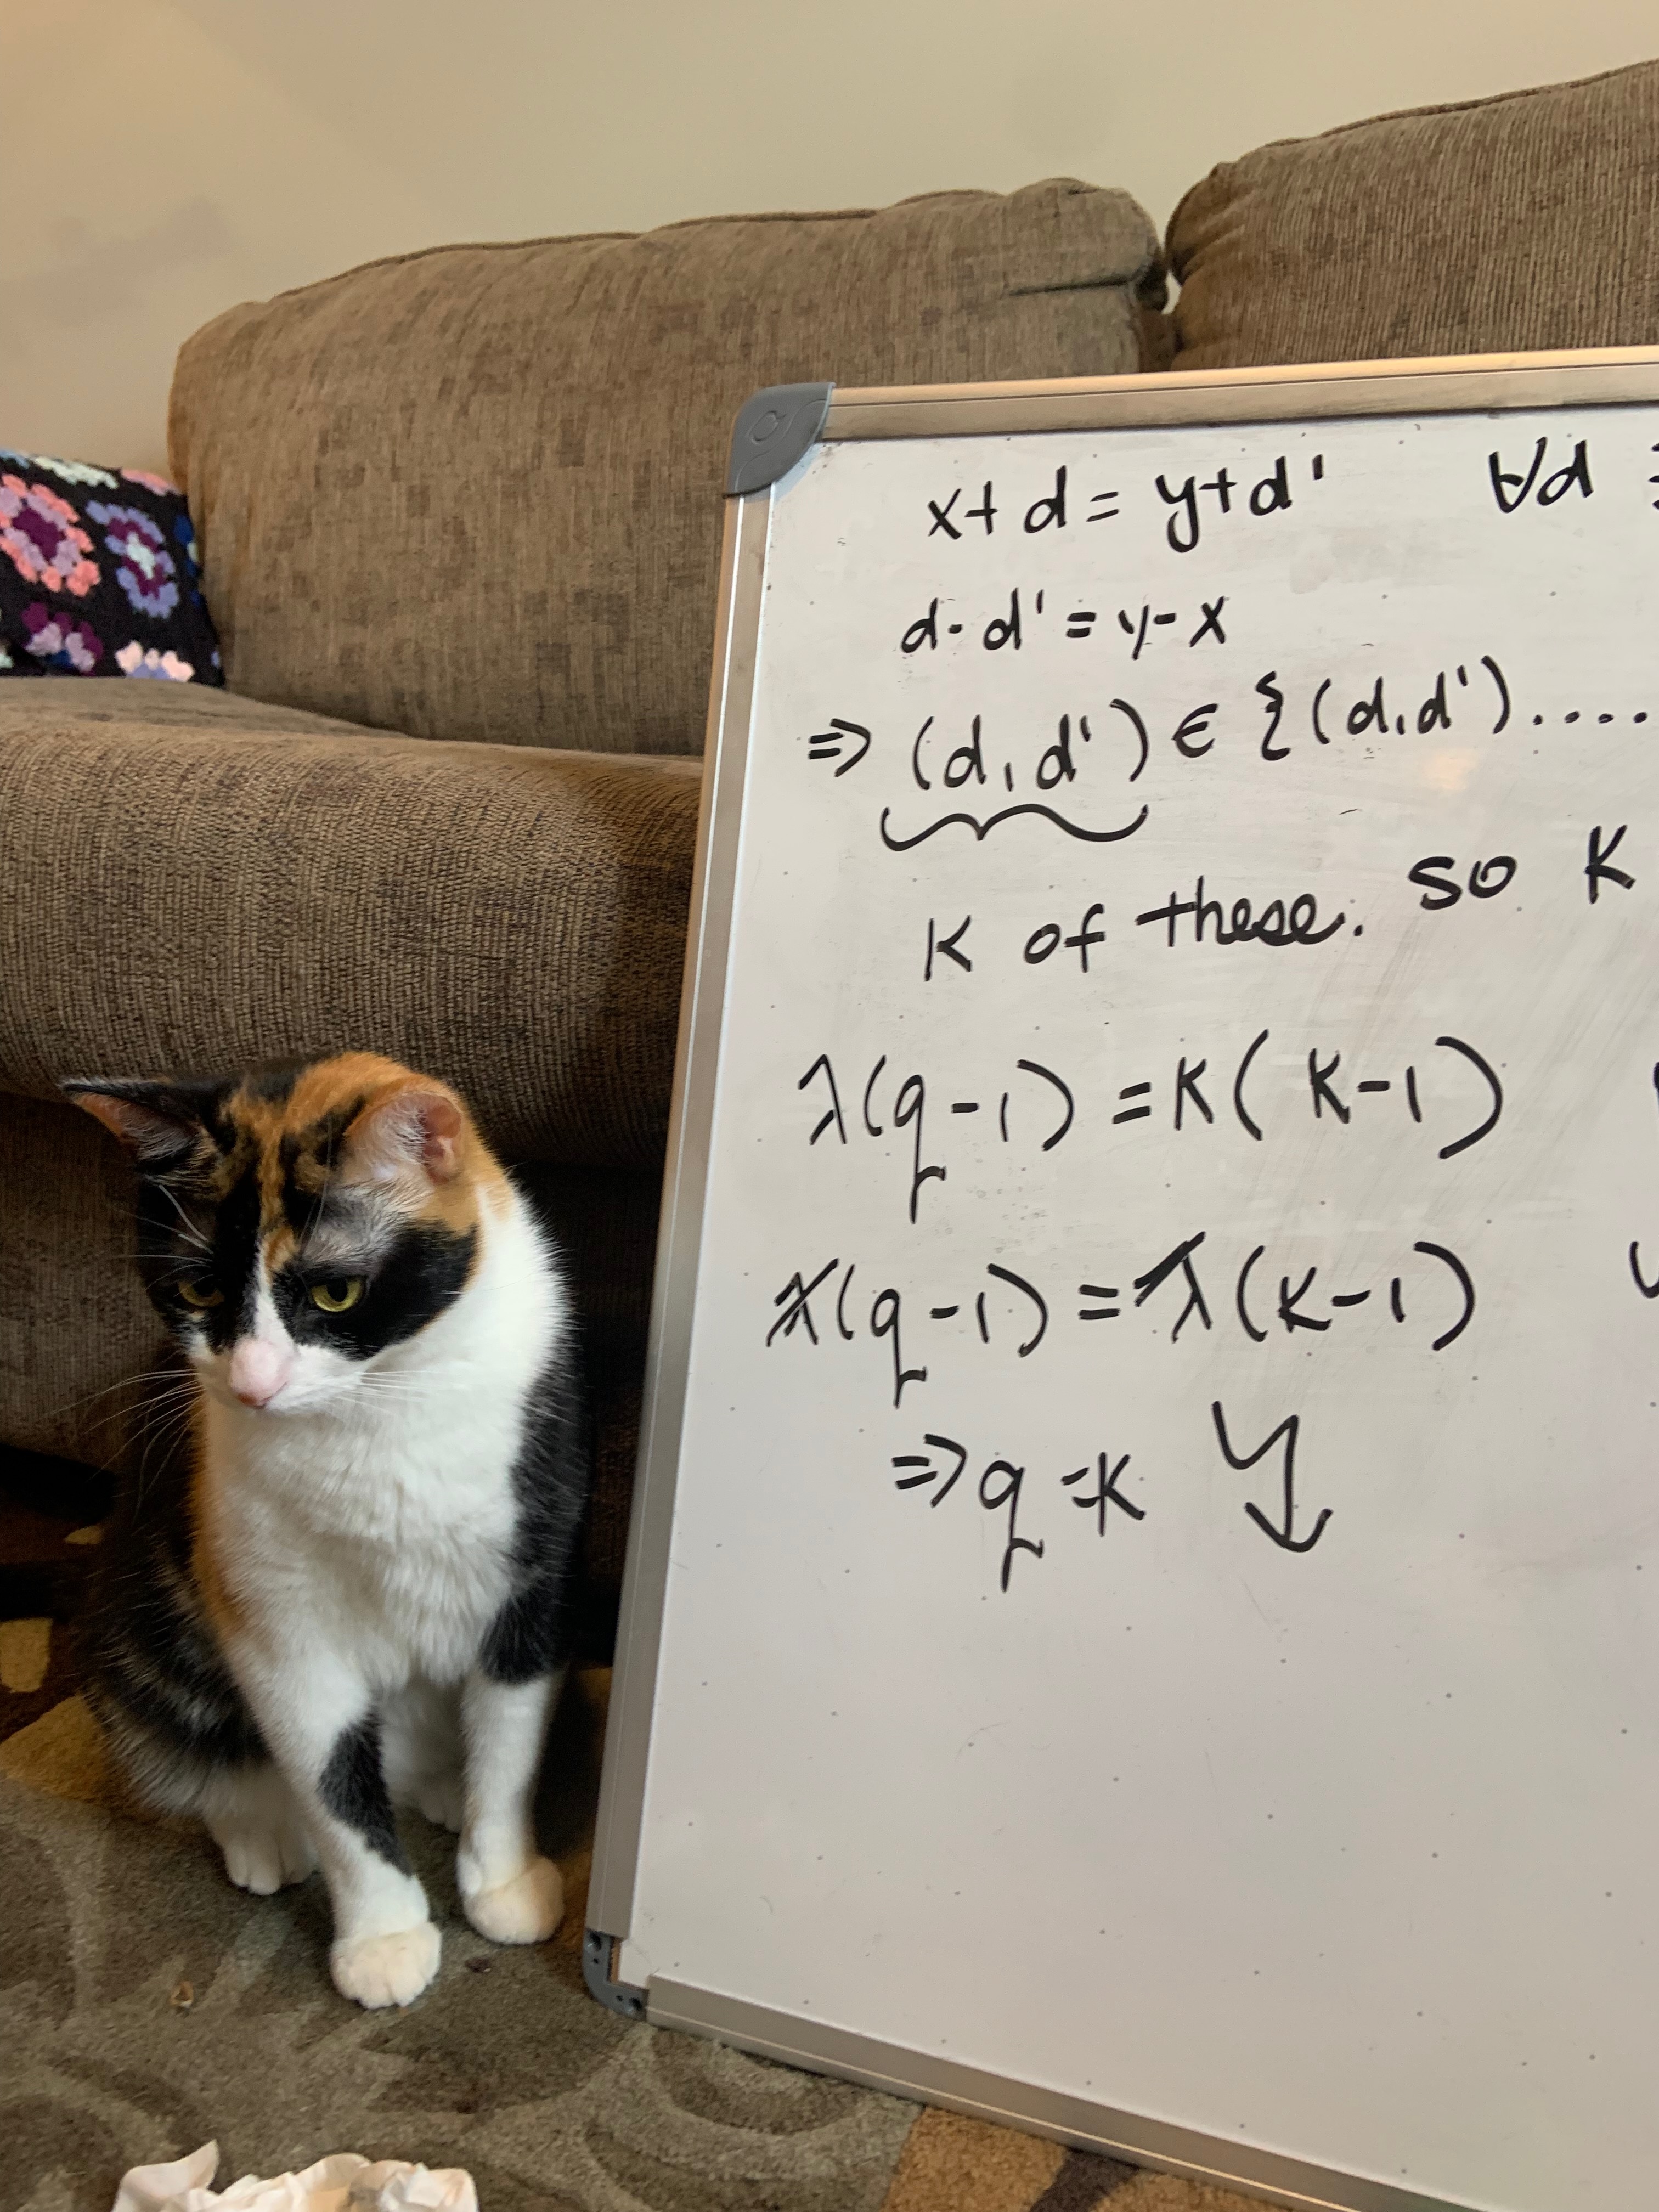 x + d = y + d' ∀d
d - d' = y - x
⇒ (d, d') ∈ {(d, d') ....
K of these. so K
λ(q-1) = K(K-1)
λ(q-1) = λ(K-1)
⇒ q = K ↯